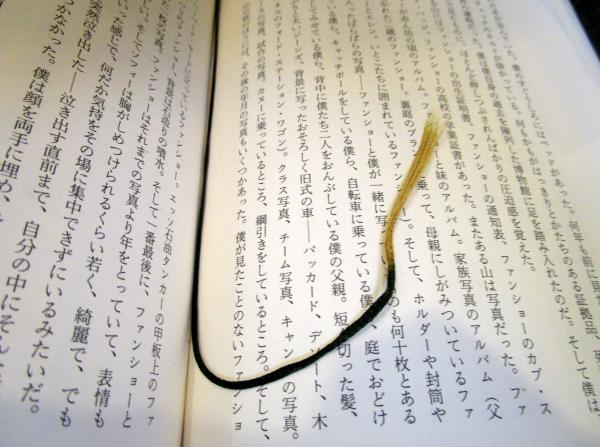 ベッドがあった。何年も前に見た
掛かっている。何もかもがはっきりとかたちのある証拠品、死
僕は僕自身の過去を陳列した博物館に足を踏み入れたのだ。そして僕は、
ほとんど押しつぶされんばかりの圧迫感を覚えた。
ファンショーの出生証明書、ファンショーの通知表、ファンショーのカブ・ス
ファンショーの高校の卒業証書があった。またある山は写真だった。ファ
ーの赤ん坊の頃のアルバム。フ ーと妹のアルバム。家族写真のアルバム（父
かれた二歳のファンショー。裏庭のブラン 乗って、母親にしがみついているファ
ーエレン。いとこたちに囲まれているファンショー）。そして、ホルダーや封筒や
入ったばらばらの写真――ファンショーと僕が一緒に写っ のも何十枚とある
る僕ら、キャッチボールをしている僕ら、自転車に乗っている僕 、庭でおどけ
してみせている僕ら、背中に僕たち二人をおんぶしている僕の父親。短 切った髪、
りと太いジーンズ、背景に写ったおそろしく旧式の車――パッカード、デソート、木
ネルのフォード・ステーション・ワゴン）。クラス写真、チーム写真、キャン の写真。
ースの写真、試合の写真。カヌーに乗っているところ、綱引きをしているところ。そして、
山の底のほうには、その後の年月の写真もいくつかあった。僕が見たことのないファンショ
っているファンショー。エッソ石油タンカーの甲板上のファ
背景は石造りの噴水。そして一番最後に、ファンショーと
た一枚の写真。ファンショーはそれまでの写真より年をとっていて、表情も
た。そして、ソフィーは胸がしめつけられるくらい若く、綺麗で、でも
いった感じで、何だか気持をその場に集中できずにいるみたいだ。
突然泣き出した――泣き出す直前まで、自分の中にそん
つかなかった。僕は顔を両手に埋め、